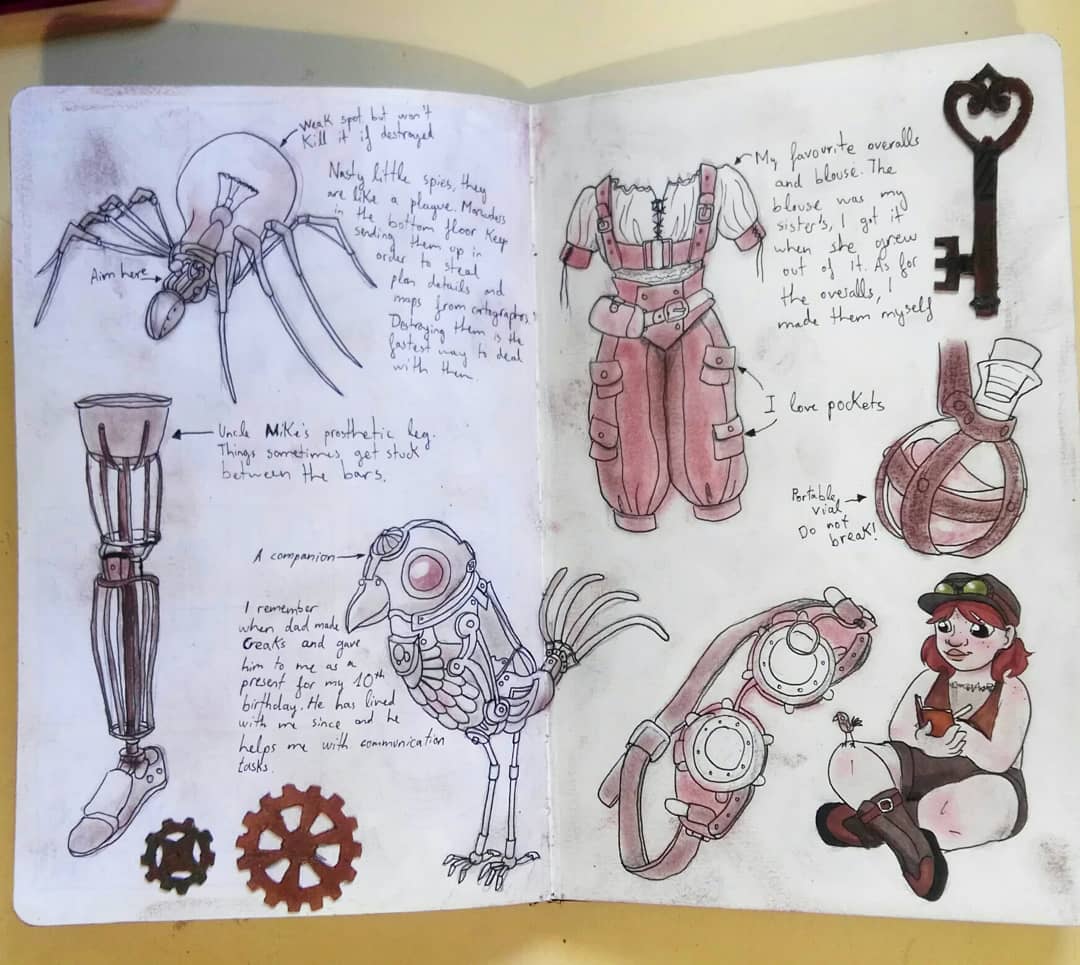 Weak spot but won't
Kill it if destroyed
Nasty little spies, they
are like a plague. Marauders
in the bottom floor Keep
sending them up in
order to steal
plan details and
maps from cartographers.
Destroying them is the
fastest way to deal
with them.
Aim here
Uncle Mike's prosthetic leg.
Things sometimes get stuck
between the bars.
A companion
I remember
when dad made
Creaks and gave
him to me as a
present for my 10th
birthday. He has lived
with me since and he
helps me with communication
tasks.
My favourite overalls
and blouse. The
blouse was my
sister's, I got it
when she grew
out of it. As for
the overalls, I
made them myself
I love pockets
Portable
vial
Do not
break!